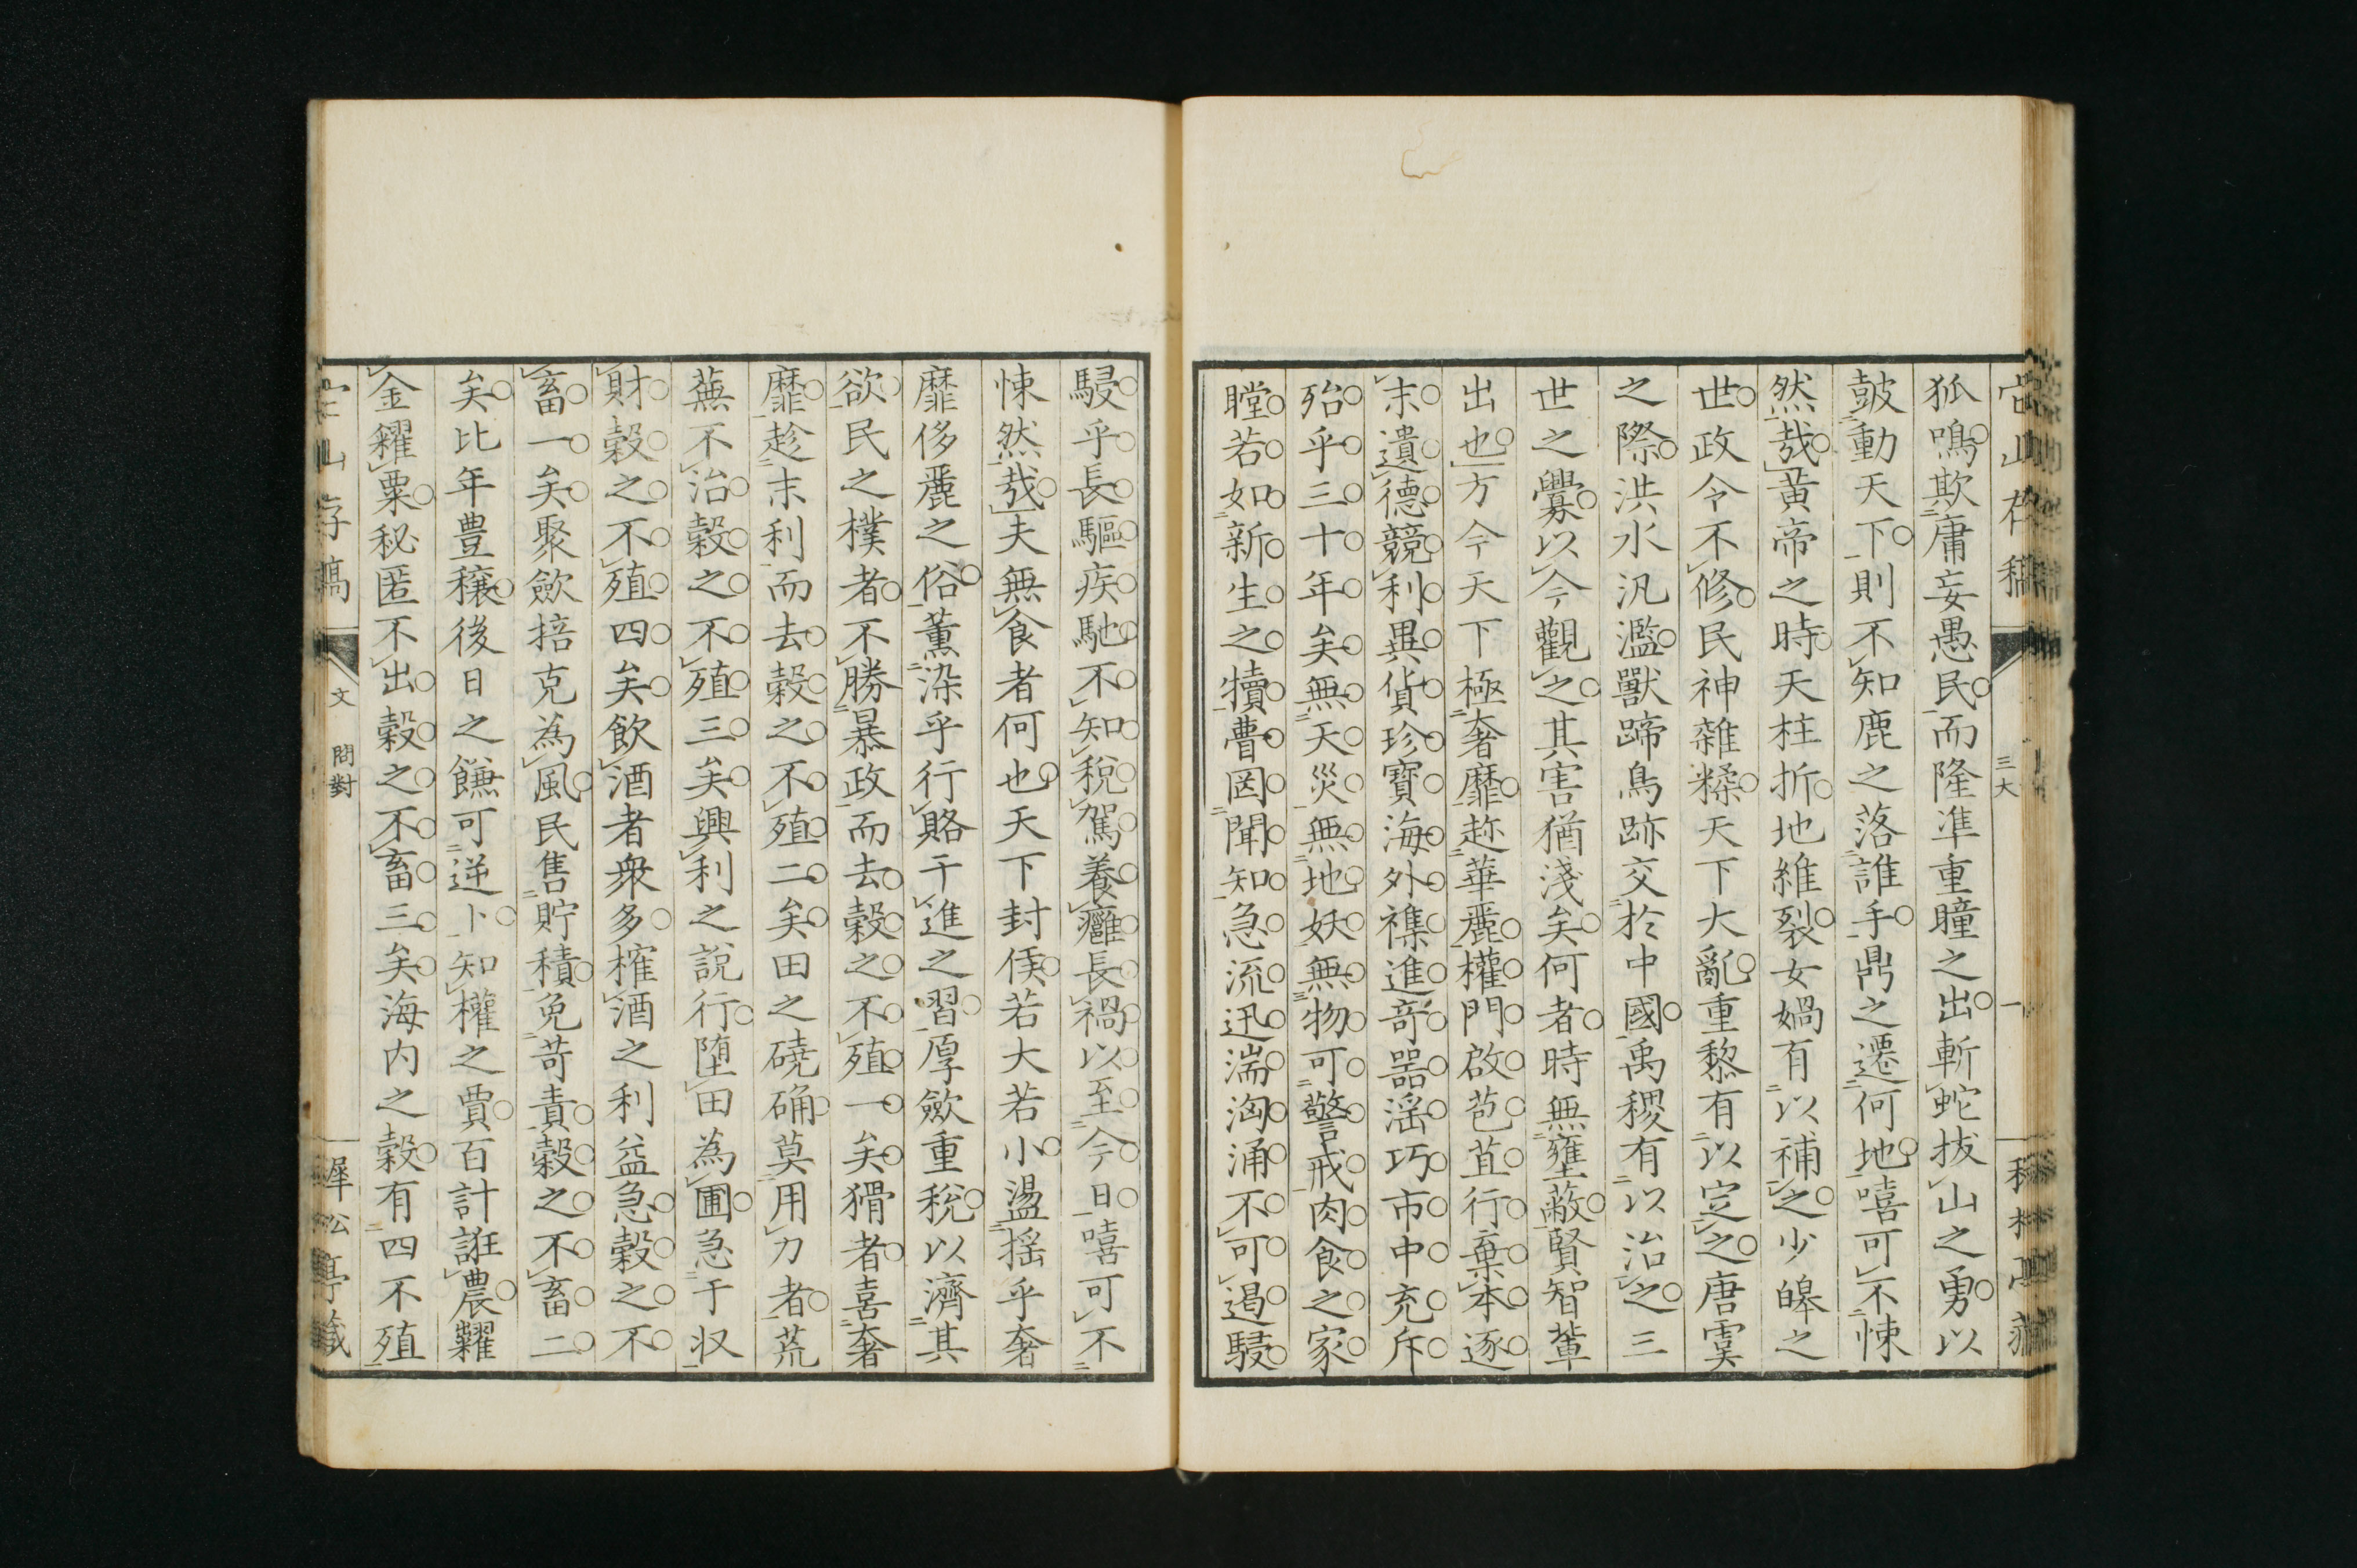 狐鳴欺庸妄愚民而隆準重瞳之出斬蛇拔山之勇以
鼓動天下則不知鹿之落誰手鼎之遷何地嘻可不悚
然哉黃帝之時天柱折地維裂女媧有以補之少皞之
世政令不修民神雜糅天下大亂重黎有以定之唐虞
之際洪水汎濫獸蹄鳥跡交於中國禹稷有以治之三
世之釁以今觀之其害猶淺矣何者時無壅蔽賢智輩
出也方今天下極奢靡趂華麗權門啟苞苴行棄本逐
末遺德競利異貨珍寶海外襍進奇器滛巧市中充斥
殆乎三十年矣無天災無地妖無物可警戒肉食之家
瞠若如新生之犢曹罔聞知急流迅湍洶涌不可遏駸
駸乎長驅疾馳不知稅駕養癰長禍以至今日嘻可不
悚然哉夫無食者何也天下封侯若大若小盪搖乎奢
靡侈麗之俗薰染乎行賂干進之習厚斂重稅以濟其
欲民之樸者不勝暴政而去穀之不殖一矣猾者喜奢
靡趁末利而去穀之不殖二矣田之磽确莫用力者荒
蕪不治穀之不殖三矣興利之說行堕田為圃急于収
財穀之不殖四矣飲酒者衆多榷酒之利益急穀之不
畜一矣聚斂掊克為風民售貯積免苛責穀之不畜二
矣比年豊穰後日之饑可逆卜知權之賈百計誑農糶
金糴粟秘匿不出穀之不畜三矣海内之穀有四不殖
文 問對
三大
一